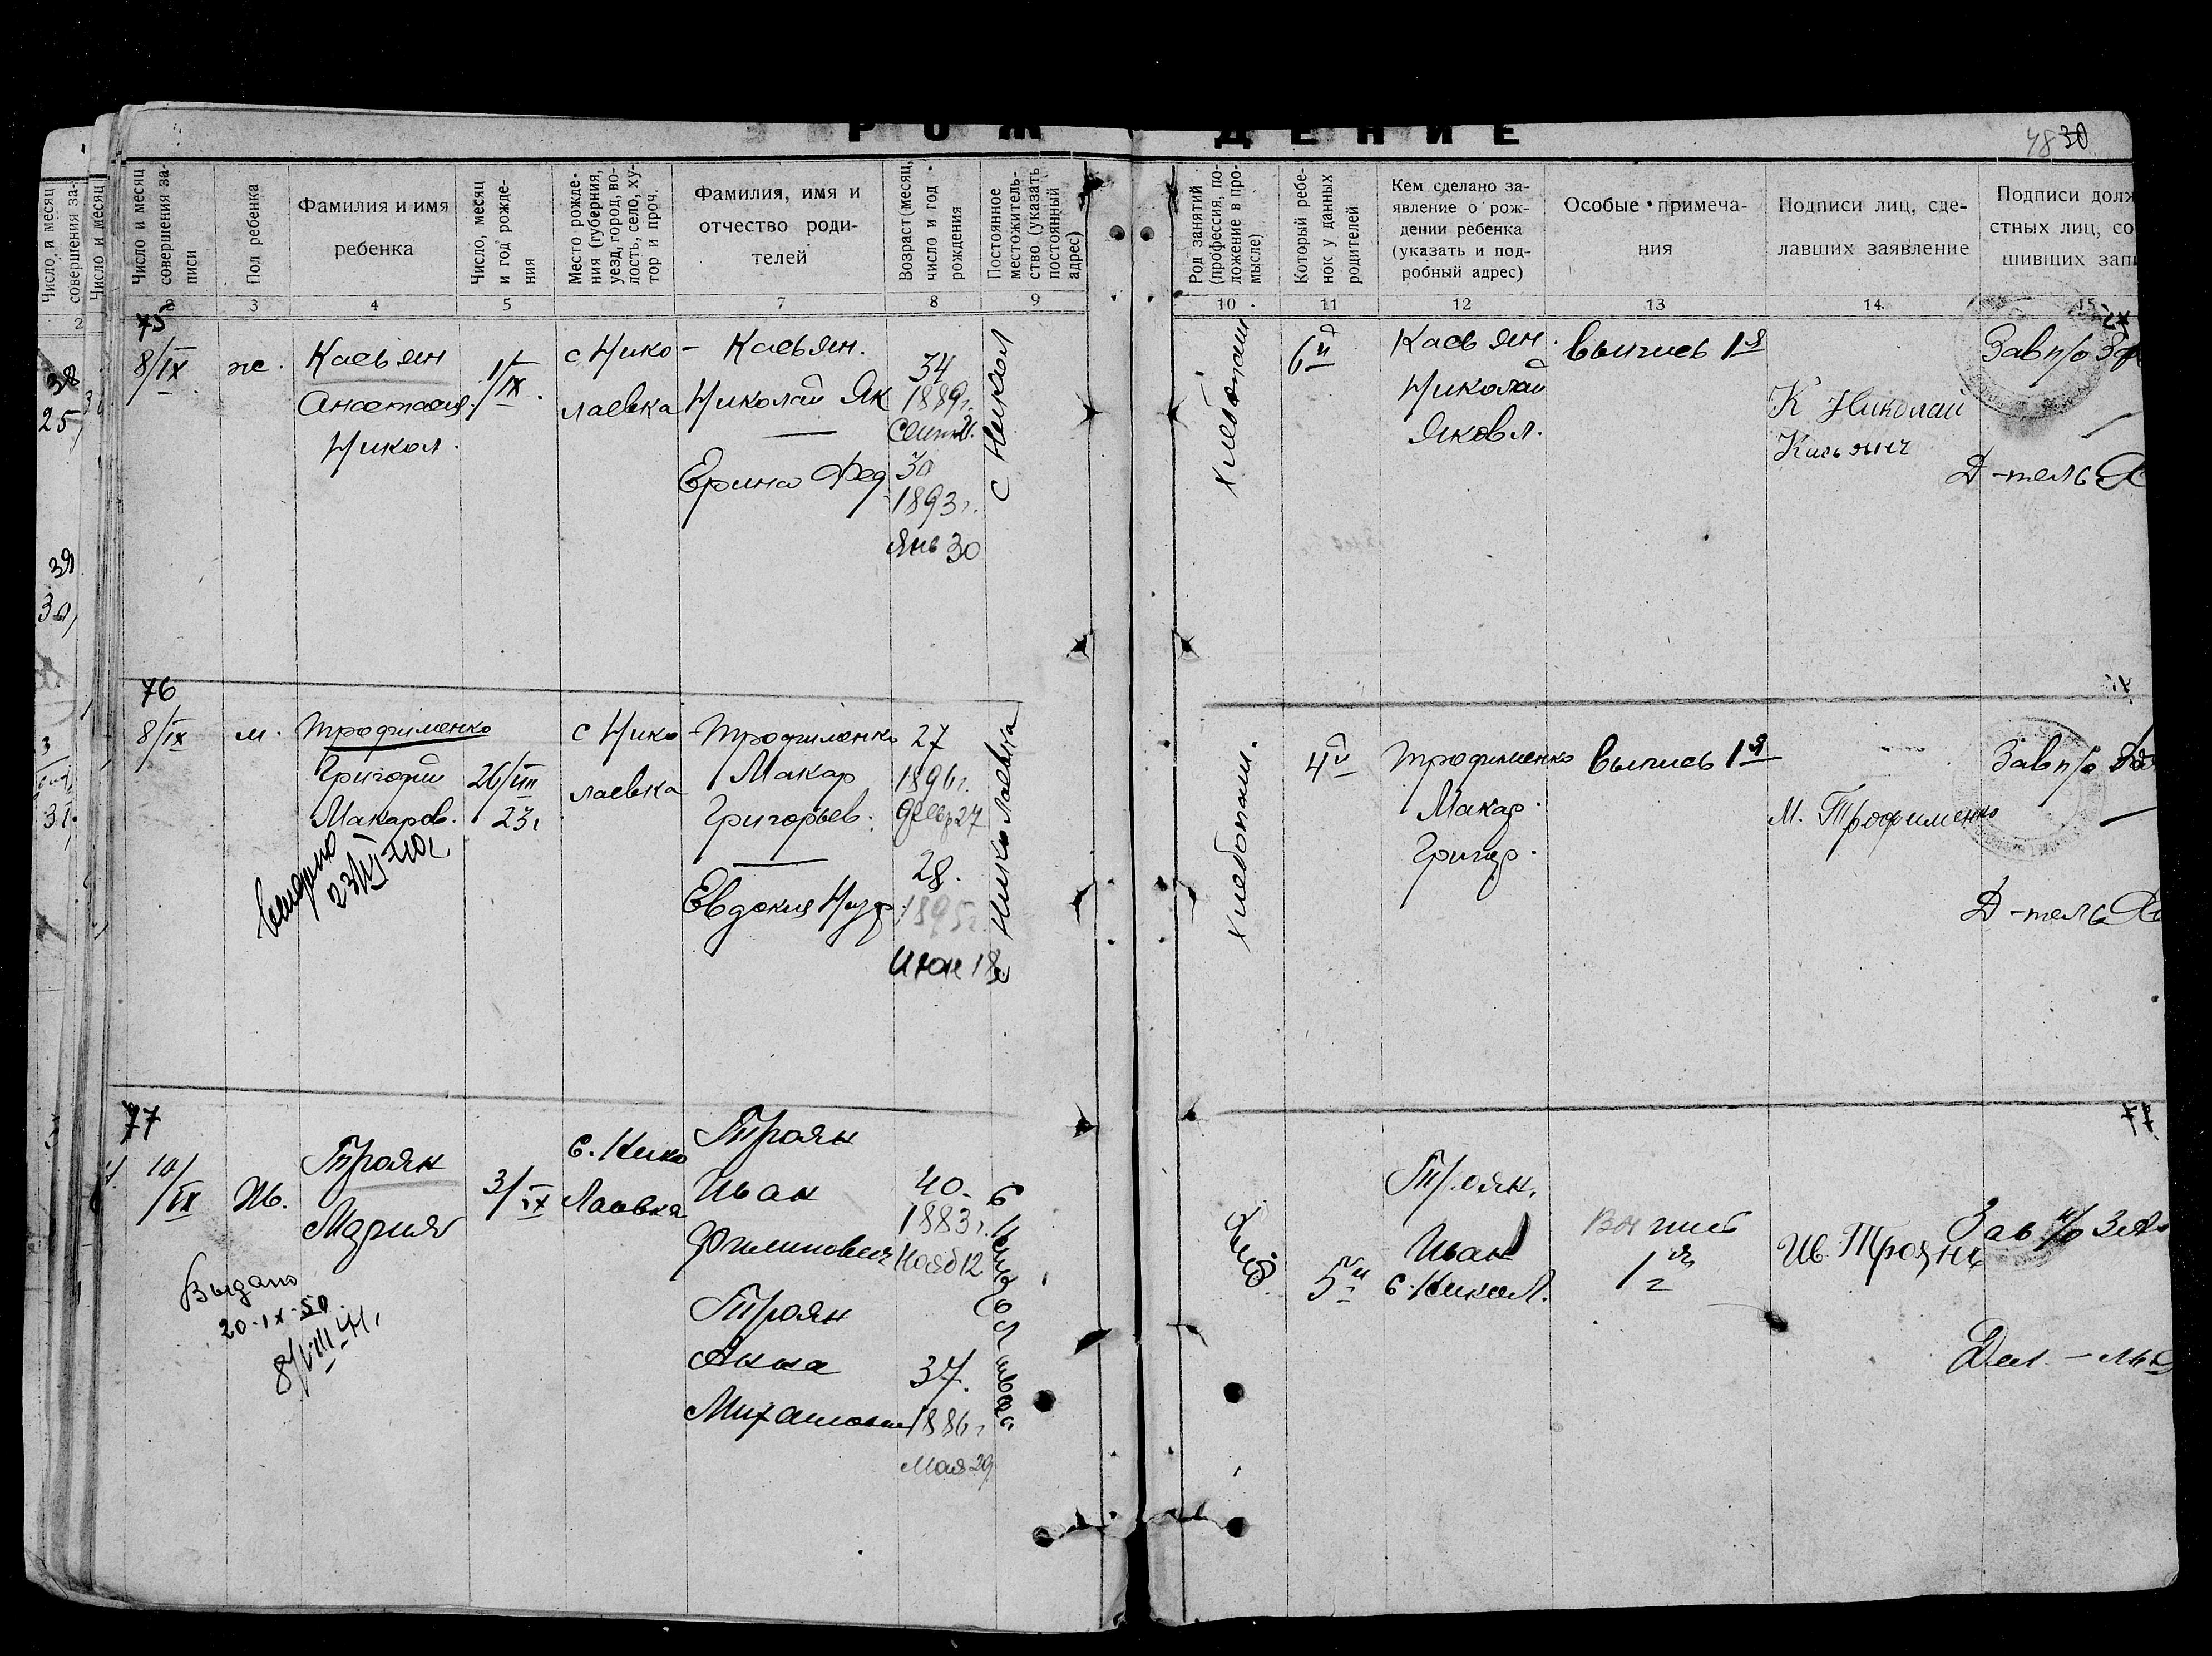 РОЖДЕНИЕ
48 30
Число и месяц совершения за-
Число и месяц
Число и месяц совершения записи
Пол ребенка
Фамилия и имя
ребенка
Число, месяц и год рождения
Место рождения (губерния, уезд, город, волость, село, хутор и проч.
Фамилия, имя и
отчество роди-
телей
Возраст (месяц, число и год рождения
Постоянное местожительство (указать постоянный адрес)
Род занятий (профессия, положение в промысле)
Который ребенок у данных родителей
Кем сделано за-
явление о рож-
дении ребенка
(указать и под-
робный адрес)
Особые примеча-
ния
Подписи лиц, сде-
лавших заявление
Подписи долж
стных лиц, со
шивших запи
2 3 4 5 7 8 9 10 11 12 13 14 15
75
8/IX
ж.
Касьян
Анастасия
Никол.
1/IX.
с Нико-
лаевка
Касьян.
Николай Як
Ерина Фед
34
1889г.
Сент 21.
30
1893г.
Янв 30
с Никол
хлебопаш
6й
Касьян.
Николай
Яковл.
выпись 1я
К Николай
Касьянч
Зав п/о
Д-тель
76
8/IX
м.
Трофименко
Григорий
Макаров.
26/VIII
23г
с Нико-
лаевка
Трофименко
Макар
Григорьев.
Евдокия
27
1896г.
февр 27
28.
1895г.
Июн 18
с Николаевка
хлебопаш.
4й
Трофименко
Макар.
Григор.
выпись 1я
М. Трофименко
Зав п/о
Д-тель
23/VI-40г
77
10/IX
Ж.
Троян
Мария
3/IX
с. Нико
лаевка
Троян
Иван
Филипович
Троян
Анна
40.
1883г.
Нояб 12
37.
1886г.
Мая 29
с Николаевка
Хлеб.
5й
Троян.
Иван
с. Никол.
1я
Ив. Троянь
Зав п/о
Выдано
20-IX-50
8/VIII 41г
77